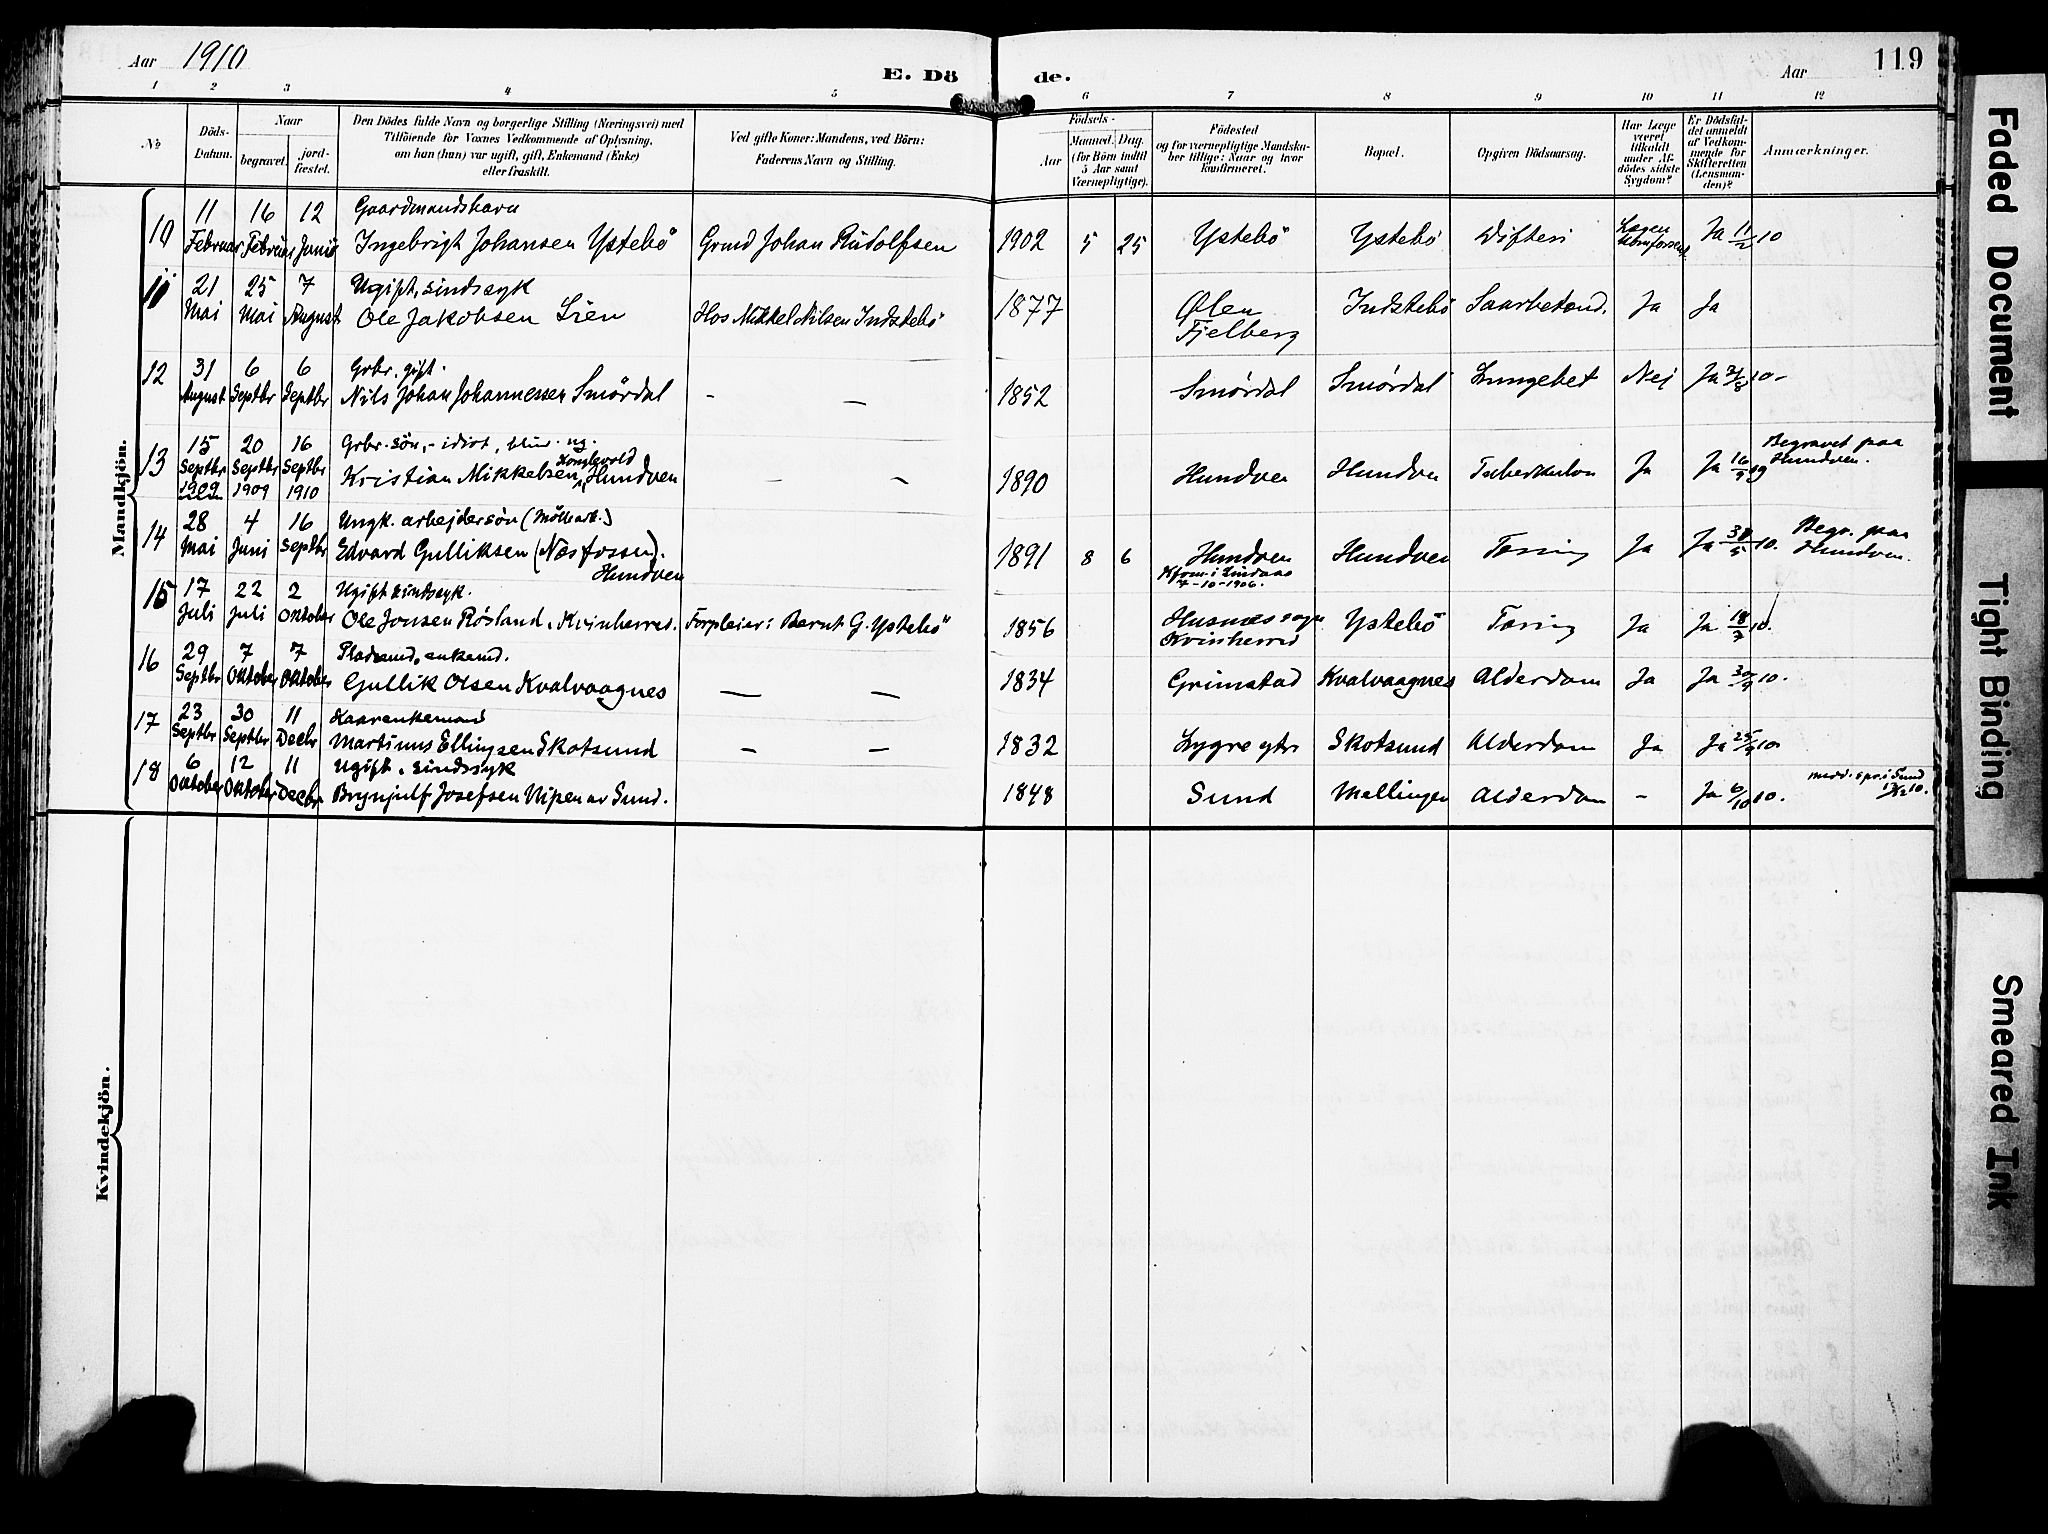 Aar 1910
E. Dö
de.
Aar
119
1 2 3 4 5 6 7 8 9 10 11 12
№
Döds-
Datum.
Naar
begravet.
jord-
fæstet.
Den Dödes fulde Navn og borgerlige Stilling (Næringsvei) med
Tilföiende for Voxnes Vedkommende af Oplysning,
om han (hun) var ugift, gift, Enkemand (Enke)
eller fraskilt.
Ved gifte Koner: Mandens, ved Börn:
Faderens Navn og Stilling.
Födsels-
Aar
Maaned. Dag.
(for Börn indtil
5 Aar samt
Værnepligtige).
Födested
og for værnepligtige Mandska-
ber tillige: Naar og hvor
konfirmeret.
Bopæl.
Opgiven Dödsaarsag.
Har Læge
været
tilkaldt
under Af-
dödes sidste
Sygdom?
Er Dödsfal-
det anmeldt
af Vedkom-
mende for
Skifteretten
(Lensman-
den)?
Anmærkninger.
Mandkjön.
11 16 12 Gaardmandsbarn
10 Februar Februar Junio Ingebrigt Johansen Ystebö Grmd Johan Rudolfsen 1902 5 25 Ystebö Ystebö Difteri Ja 11/2 10
21 25 7 Ugift, sindssyk
11 Mai Mai August Ole Jakobsen Lien Hos Mikkel Nilsen Indstebö 1877 Ølen Indstebö Ja Ja
Fjelberg
31 6 6 Grbr. gift.
12 August Septbr Septbr Nils Johan Johannessen Smørdal - — 1852 Smørdal Smørdal Lungebet Nej Ja 10-
15 20 16 Grbr. søn, - idiot, ug.
Konglevold
13 Septbr Septbr Septbr Kristian Mikkelsen Hundven - - 1890 Hundven Hundven Tuberkulos Ja Ja 16/9 09 Begravet paa
1909 1909 1910 Hundven.
28 4 16 Ungk. arbejdersön (Møllearb.)
14 Mai Juni Septbr Edvard Gulliksen (Næsfossen). 1891 8 6 Hundven Hundven Tæring Ja Ja 10. Begr. paa
Hundven Kfom. i Lindaas Hundven.
7-10-1906.
17 22 2 Ugift sindssyk.
15 Juli Juli Oktober Ole Jonsen Røsland, Kvinherred. Forpleier: Bernt G. Ystebö 1856 Husnes sogn Ystebö Tæring Ja Ja 18/7 10.
Kvinherred
29 7 7 Pladsmd, enkemd.
16 Septbr Oktober Oktober Gullik Olsen Kvalvaagnes — — 1834 Grimstad Kvalvaagnes Alderdom Ja Ja 30/9 10.
23 30 11 Kaarenkemand
17 Septbr Septbr Decbr Martinus Ellingsen Skotsund — — 1832 Lygre ytr Skotsund Alderdom Ja Ja 25/9 10
6 12 11 Ugift, sindssyk
18 Oktober Oktober Decbr Brynjulf Josefsen Vipen av Sund. 1848 Sund Mellingen Alderdom - Ja 6/10 10. medd. spr. i Sund
Kvindekjön.
Faded Document
Tight Binding
Smeared Ink